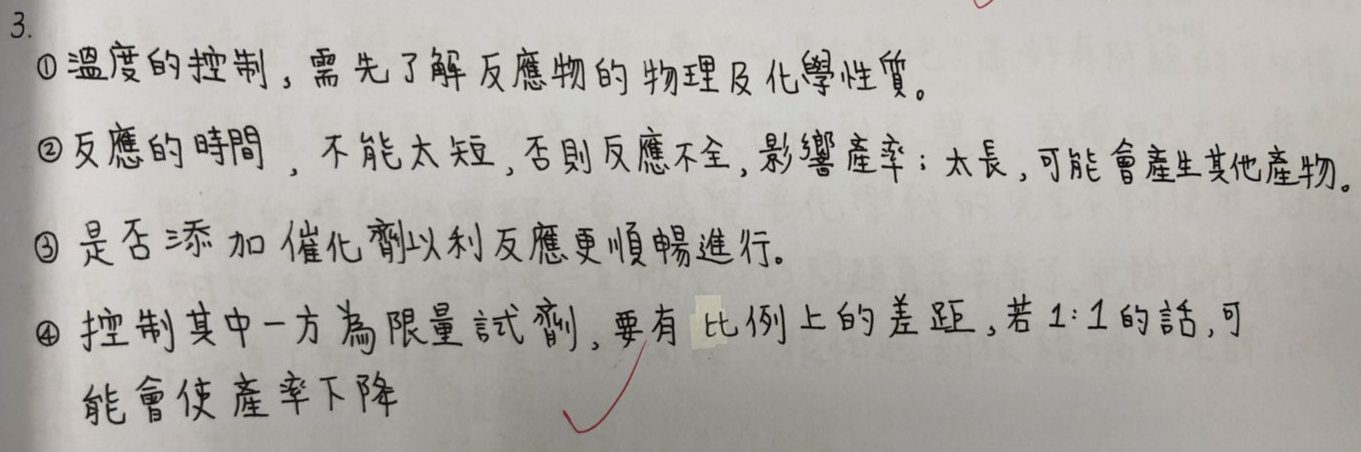 3.
① 溫度的控制,需先了解反應物的物理及化學性質。
② 反應的時間,不能太短,否則反應不全,影響產率;太長,可能會產生其他產物。
③ 是否添加催化劑以利反應更順暢進行。
④ 控制其中一方為限量試劑,要有比例上的差距,若1:1的話,可
能會使產率下降